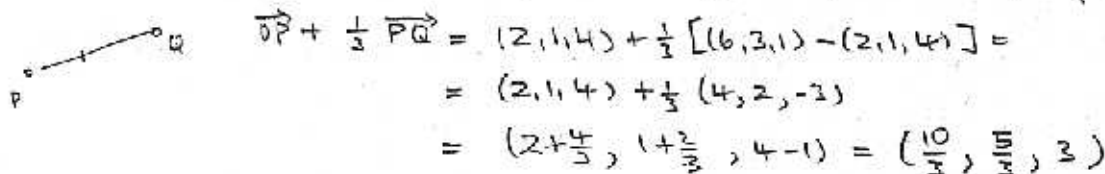 P Q
$\overrightarrow{OP} + \frac{1}{3} \overrightarrow{PQ} = (2,1,4) + \frac{1}{3} [(6,3,1) - (2,1,4)] =$
$= (2,1,4) + \frac{1}{3} (4,2,-3)$
$= (2+\frac{4}{3}, 1+\frac{2}{3}, 4-1) = (\frac{10}{3}, \frac{5}{3}, 3)$